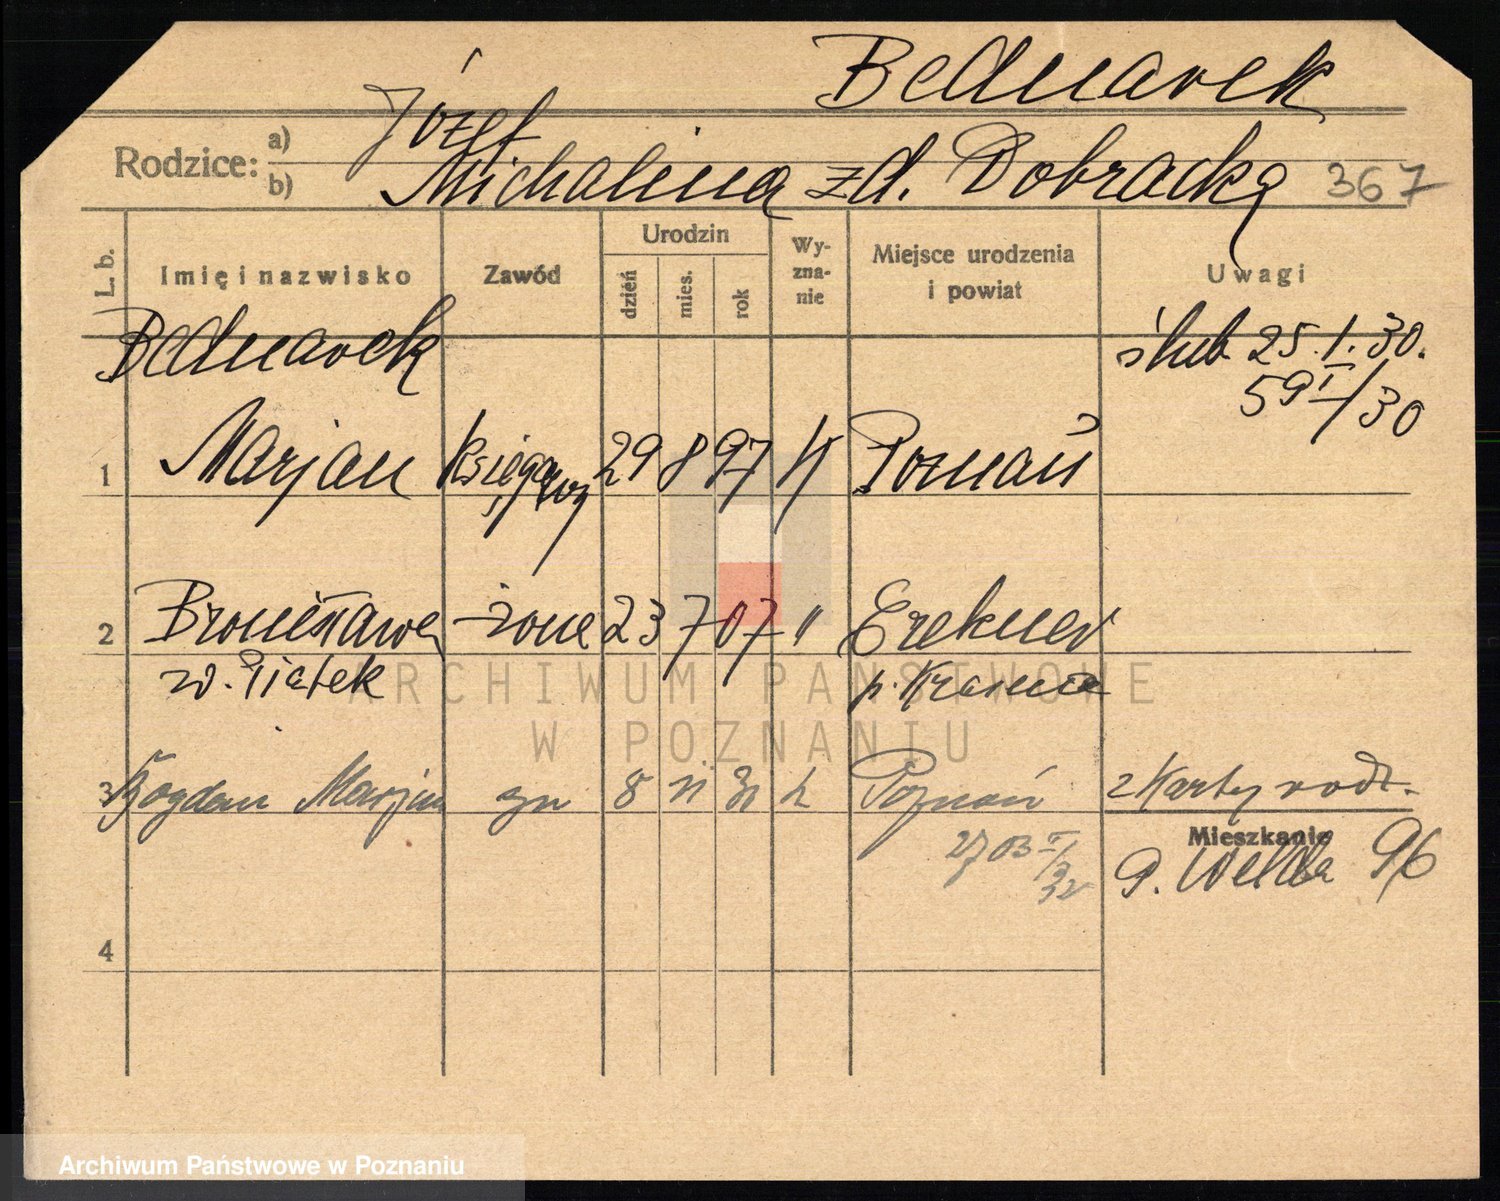 Bednarek
Rodzice: a) Józef
b) Michalina zd. Dobracka 367
L. b. Imię i nazwisko Zawód Urodzin dzień mies. rok Wy-zna-nie Miejsce urodzenia i powiat Uwagi
Bednarek ślub 25.I.30.
59 I/30
1 Marjan księgarz 29 8 97 Poznań
2 Bronisława żona 23 7 07 "
z d. Piątek
3 Bogdan Marjan syn 8 Poznań z karty rodz.
Mieszkanie
96
4
ARCHIWUM PAŃSTWOWE
W POZNANIU
Archiwum Państwowe w Poznaniu